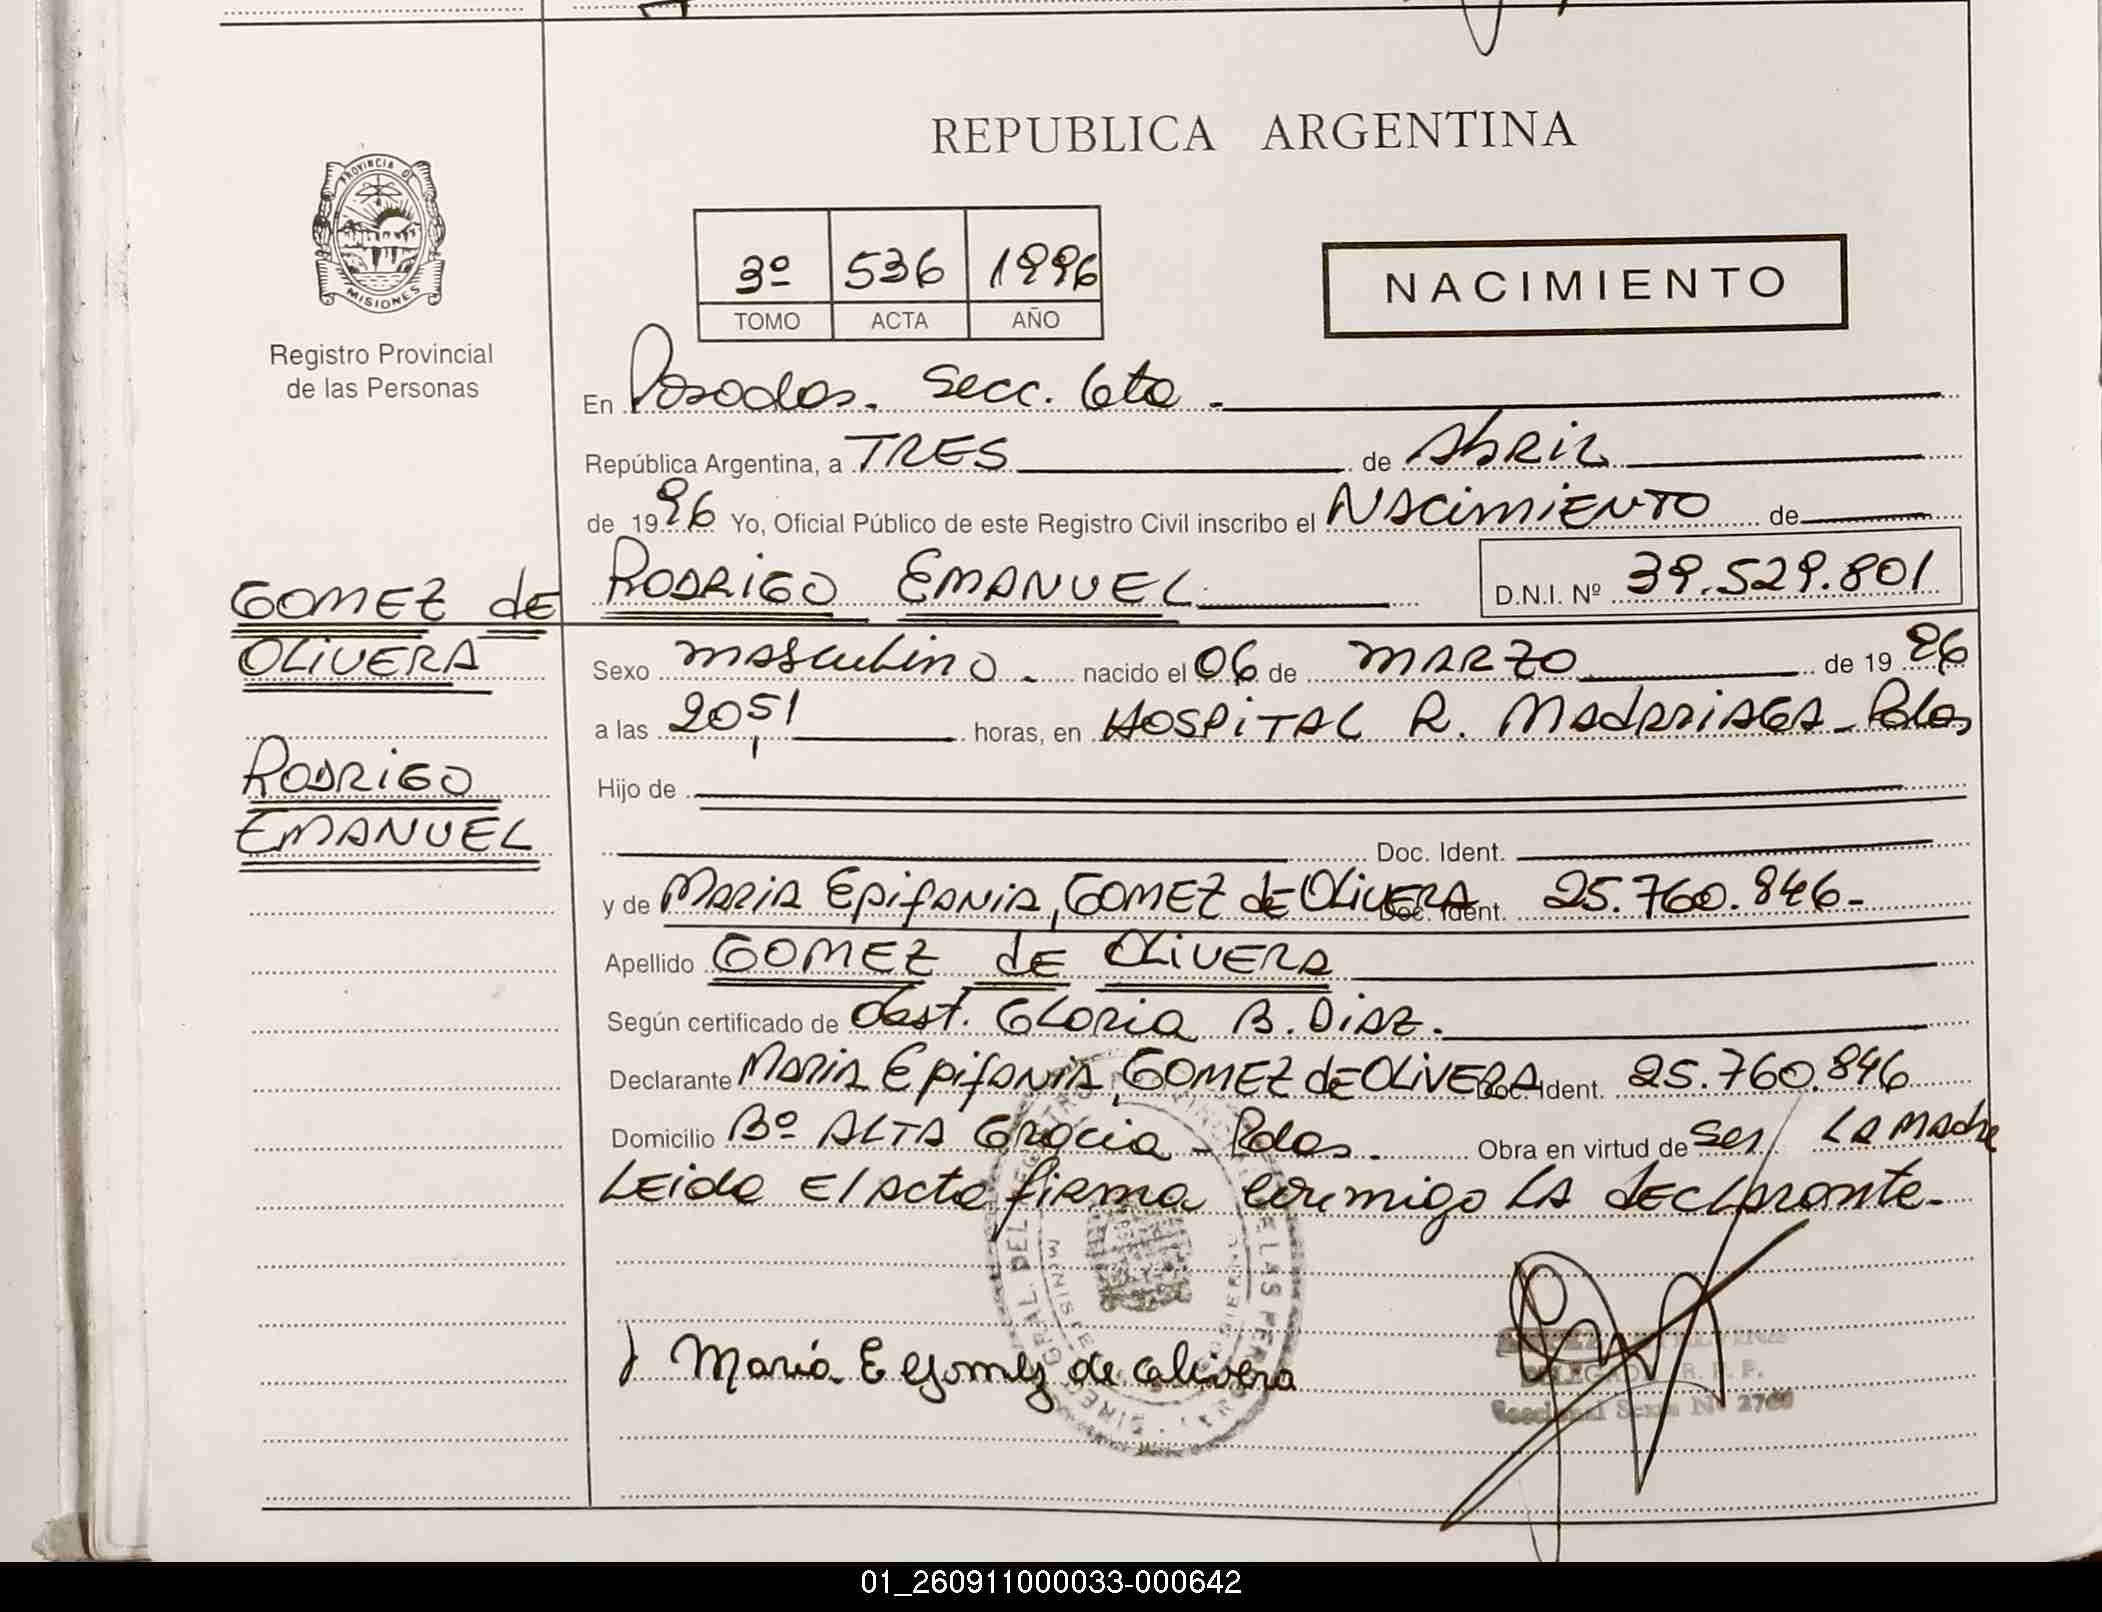 REPUBLICA ARGENTINA
PROVINCIA DE
MISIONES
Registro Provincial
de las Personas
3º 536 1996
TOMO ACTA AÑO
NACIMIENTO
En Posadas. Secc. 6ta.
República Argentina, a TRES de Abril
de 1996 Yo, Oficial Público de este Registro Civil inscribo el NACIMIENTO de
GOMEZ de
OLIVERA
RODRIGO
EMANUEL
RODRIGO EMANUEL D.N.I. Nº 39.529.801
Sexo masculino. nacido el 06 de MARZO de 1996
a las 20,51 horas, en HOSPITAL R. MADARIAGA - Pdas
Hijo de
Doc. Ident.
y de MARIA EPIFANIA, GOMEZ de OLIVERA Doc. Ident. 25.760.846-
Apellido GOMEZ de OLIVERA
Según certificado de Obst. GLORIA B. DIAZ.
Declarante MARIA EPIFANIA, GOMEZ de OLIVERA Doc. Ident. 25.760.846
Domicilio Bº ALTA Gracia - Pdas. Obra en virtud de ser LA Madre
LEida El acta firma conmigo LA dECLARante-
María E Gomez de Olivera
01_260911000033-000642